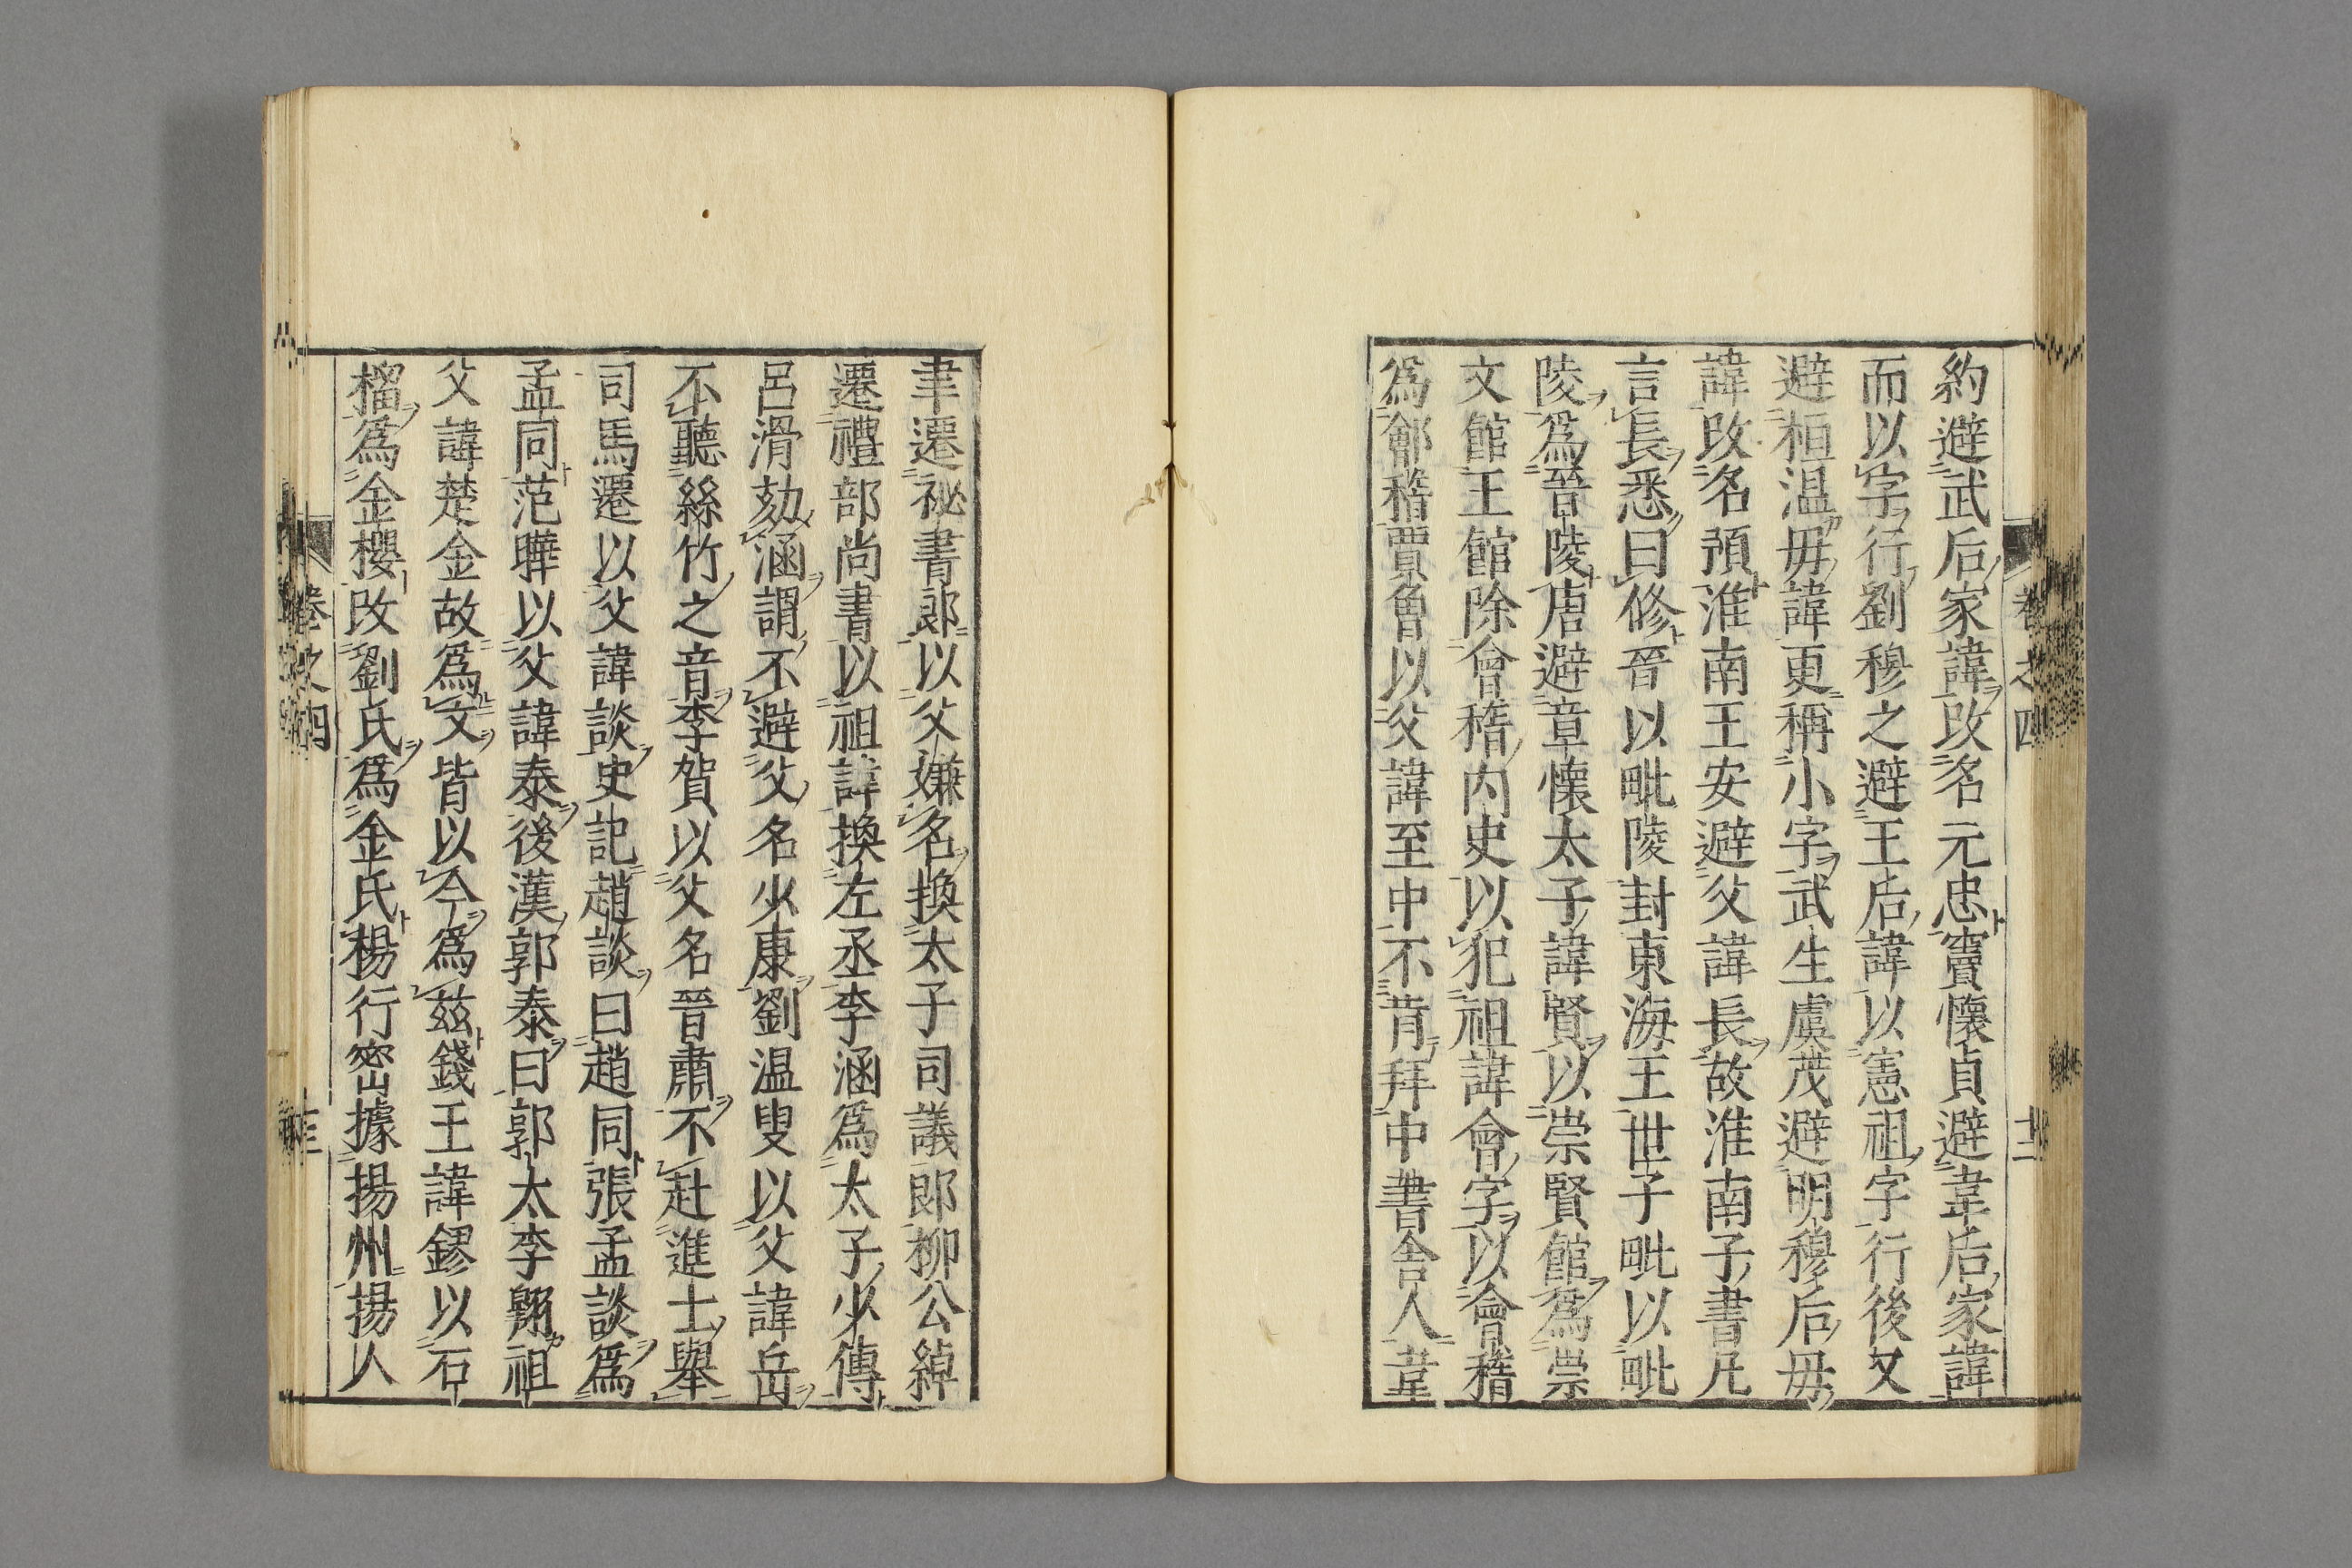 約避武后家諱改名元忠竇懷貞避韋后家諱
而以字行劉穆之避王后諱以憲祖字行後又
避桓温母諱更稱小字武生虞茂避明穆后母
諱改名預淮南王安避父諱長故淮南子書凡
言長悉曰修晉以毗陵封東海王世子毗以毗
陵為晉陵唐避章懷太子諱賢以崇賢館為崇
文館王館除會稽内史以犯祖諱會字以會稽
為鄶稽賈魯以父諱至中不肯拜中書舎人韋
聿遷祕書郎以父嫌名換太子司議郎柳公綽
遷禮部尚書以祖諱換左丞李涵為太子少傅
呂滑劾涵謂不避父名少康劉温叟以父諱岳
不聽絲竹之音李賀以父名晉肅不赴進士舉
司馬遷以父諱談史記趙談曰趙同張孟談為
孟同范曄以父諱泰後漢郭泰曰郭太李翺祖
父諱楚金故為文皆以今為茲錢王諱鏐以石
榴為金櫻改劉氏為金氏楊行密據揚州揚人
卷之四